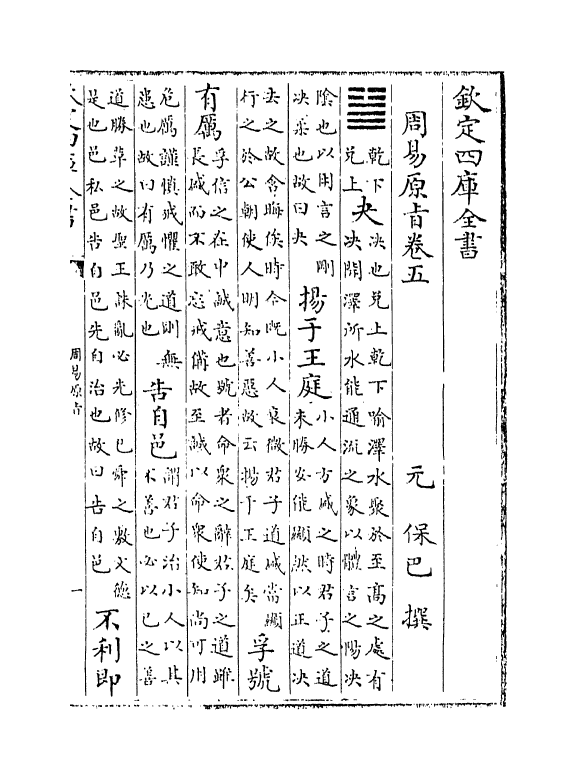 欽定四庫全書
周易原㫖卷五　元　保巴　撰
乾下
兑上
夬
決也兑上乾下喻澤水聚於至髙之處有
決開澤所水能通流之象以體言之陽決
陰也以用言之剛
決柔也故曰夬
揚于王庭
小人方盛之時君子之道
未勝安能顯然以正道決
去之故含晦俟時今既小人衰微君子道盛當顯
行之於公朝使人明知善惡故云揚于王庭矣
孚號
有厲
孚信之在中誠意也號者命衆之辭君子之道雖
長盛而不敢忘戒備故至誠以命衆使知尚可用
危厲謹慎戒懼之道則無
患也故曰有厲乃光也
告自邑
謂君子治小人以其
不善也必以已之善
道勝革之故聖王誅亂必先修已舜之敷文德
是也邑私邑告自邑先自治也故曰告自邑
不利即
周易原㫖
一